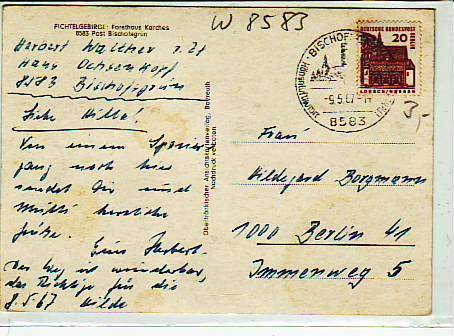 FICHTELGEBIRGE: Forsthaus Karches
8583 Post Bischofsgrün
W 8583
Herbert Walther z. Zt
Haus Ochsenkopf
8583 Bischofsgrün
Liebe Hilla!
Von einem Spazier
gang nach hier
sendet Dir und
Mutti herzliche
Grüße.
Euer Herbert.
Der Weg ist wunderbar,
das Richtige für die
8.5.67 Hilde
Oberfränkischer Ansichtskartenverlag, Bayreuth
Nachdruck verboten
BISCHOF
-9.5.67-14
8583
DEUTSCHE BUNDESPOST
20
3,-
Frau
Hildegard Borgmann
1000 Berlin 41
Immenweg 5